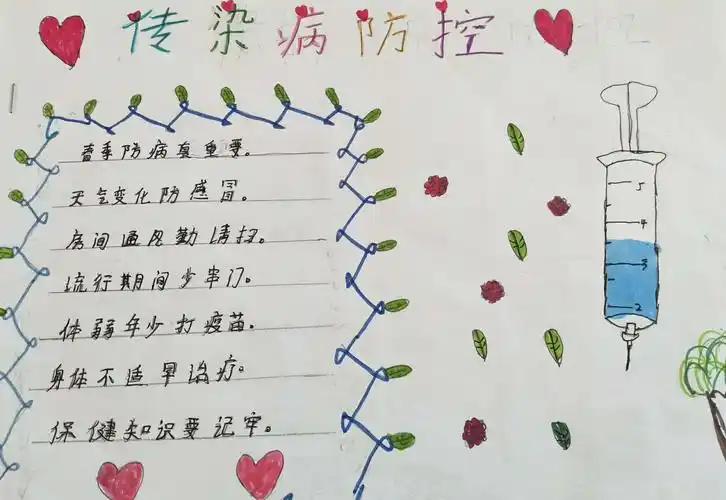 传染病防控
春季防病最重要。
天气变化防感冒。
房间通风勤清扫。
流行期间少串门。
体弱年少打疫苗。
身体不适早治疗。
保健知识要记牢。
5
4
3
2